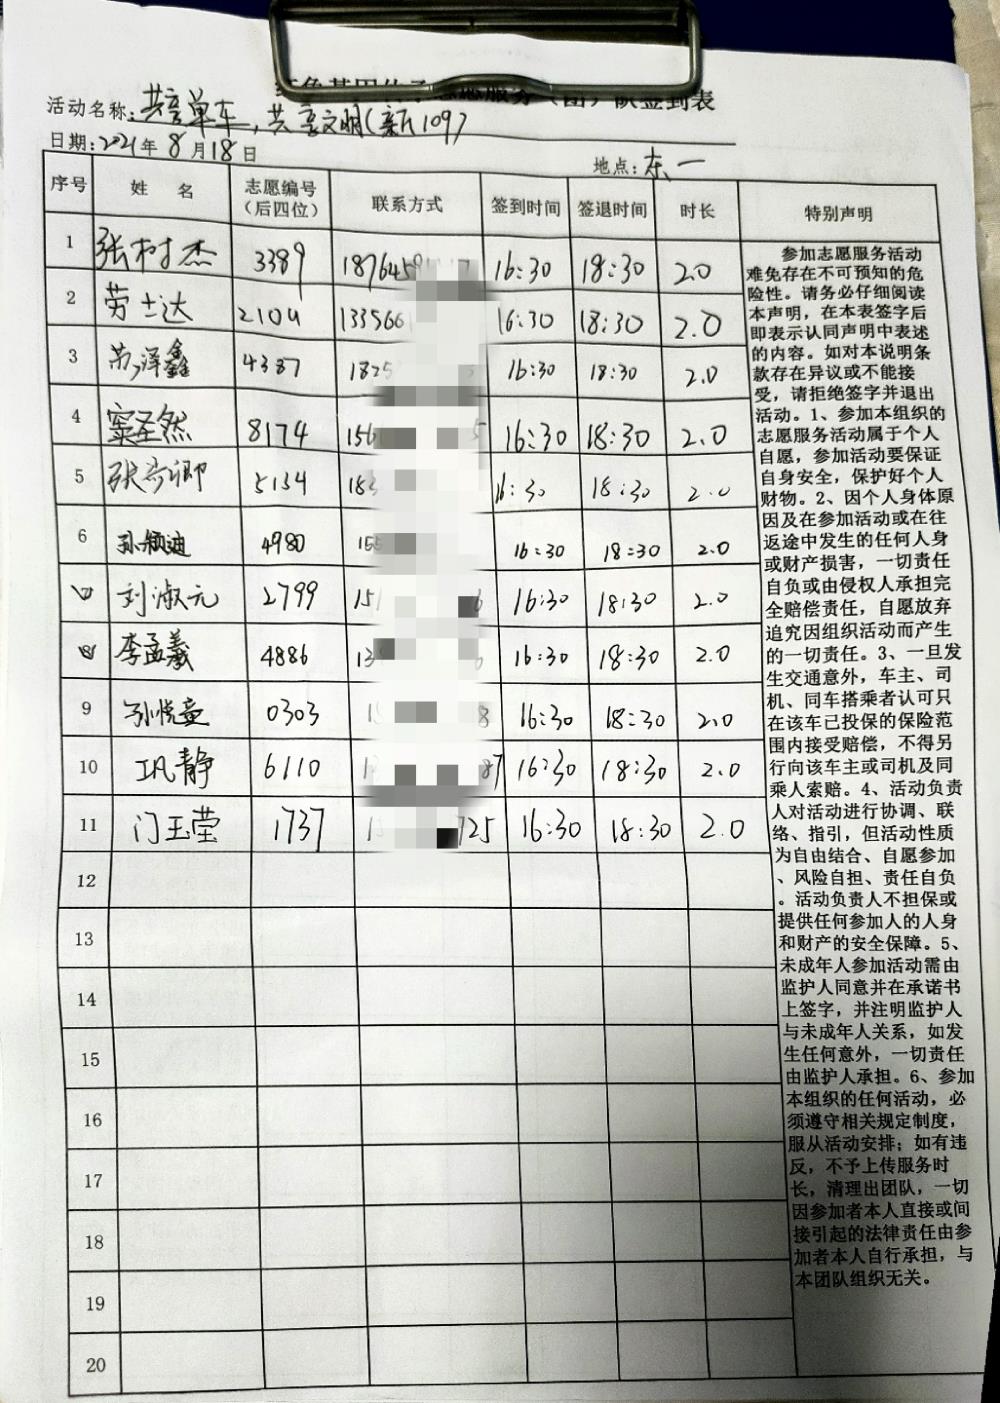 志愿服务（团）队签到表
活动名称：共享单车，共享文明（新109）
日期：2021年8月18日
地点：东一
序号 姓 名 志愿编号（后四位） 联系方式 签到时间 签退时间 时长 特别声明
1 张树杰 3389 1876459 16:30 18:30 2.0
2 劳士达 2104 133566 16:30 18:30 2.0
3 劳泽鑫 4387 1825 16:30 18:30 2.0
4 窦圣然 8174 156 5 16:30 18:30 2.0
5 张 卿 5134 183 16:30 18:30 2.0
6 孙颖迪 4980 155 16:30 18:30 2.0
刘淑元 2799 151 6 16:30 18:30 2.0
李孟羲 4886 13 6 16:30 18:30 2.0
9 孙悦童 0303 1 8 16:30 18:30 2.0
10 巩静 6110 1 87 16:30 18:30 2.0
11 门玉莹 1737 1 725 16:30 18:30 2.0
12
13
14
15
16
17
18
19
20
参加志愿服务活动
难免存在不可预知的危
险性。请务必仔细阅读
本声明，在本表签字后
即表示认同声明中表述
的内容。如对本说明条
款存在异议或不能接
受，请拒绝签字并退出
活动。1、参加本组织的
志愿服务活动属于个人
自愿，参加活动要保证
自身安全，保护好个人
财物。2、因个人身体原
因及在参加活动或在往
返途中发生的任何人身
或财产损害，一切责任
自负或由侵权人承担完
全赔偿责任，自愿放弃
追究因组织活动而产生
的一切责任。3、一旦发
生交通意外，车主、司
机、同车搭乘者认可只
在该车已投保的保险范
围内接受赔偿，不得另
行向该车主或司机及同
乘人索赔。4、活动负责
人对活动进行协调、联
络、指引，但活动性质
为自由结合、自愿参加
、风险自担、责任自负
。活动负责人不担保或
提供任何参加人的人身
和财产的安全保障。5、
未成年人参加活动需由
监护人同意并在承诺书
上签字，并注明监护人
与未成年人关系，如发
生任何意外，一切责任
由监护人承担。6、参加
本组织的任何活动，必
须遵守相关规定制度，
服从活动安排；如有违
反，不予上传服务时
长，清理出团队，一切
因参加者本人直接或间
接引起的法律责任由参
加者本人自行承担，与
本团队组织无关。